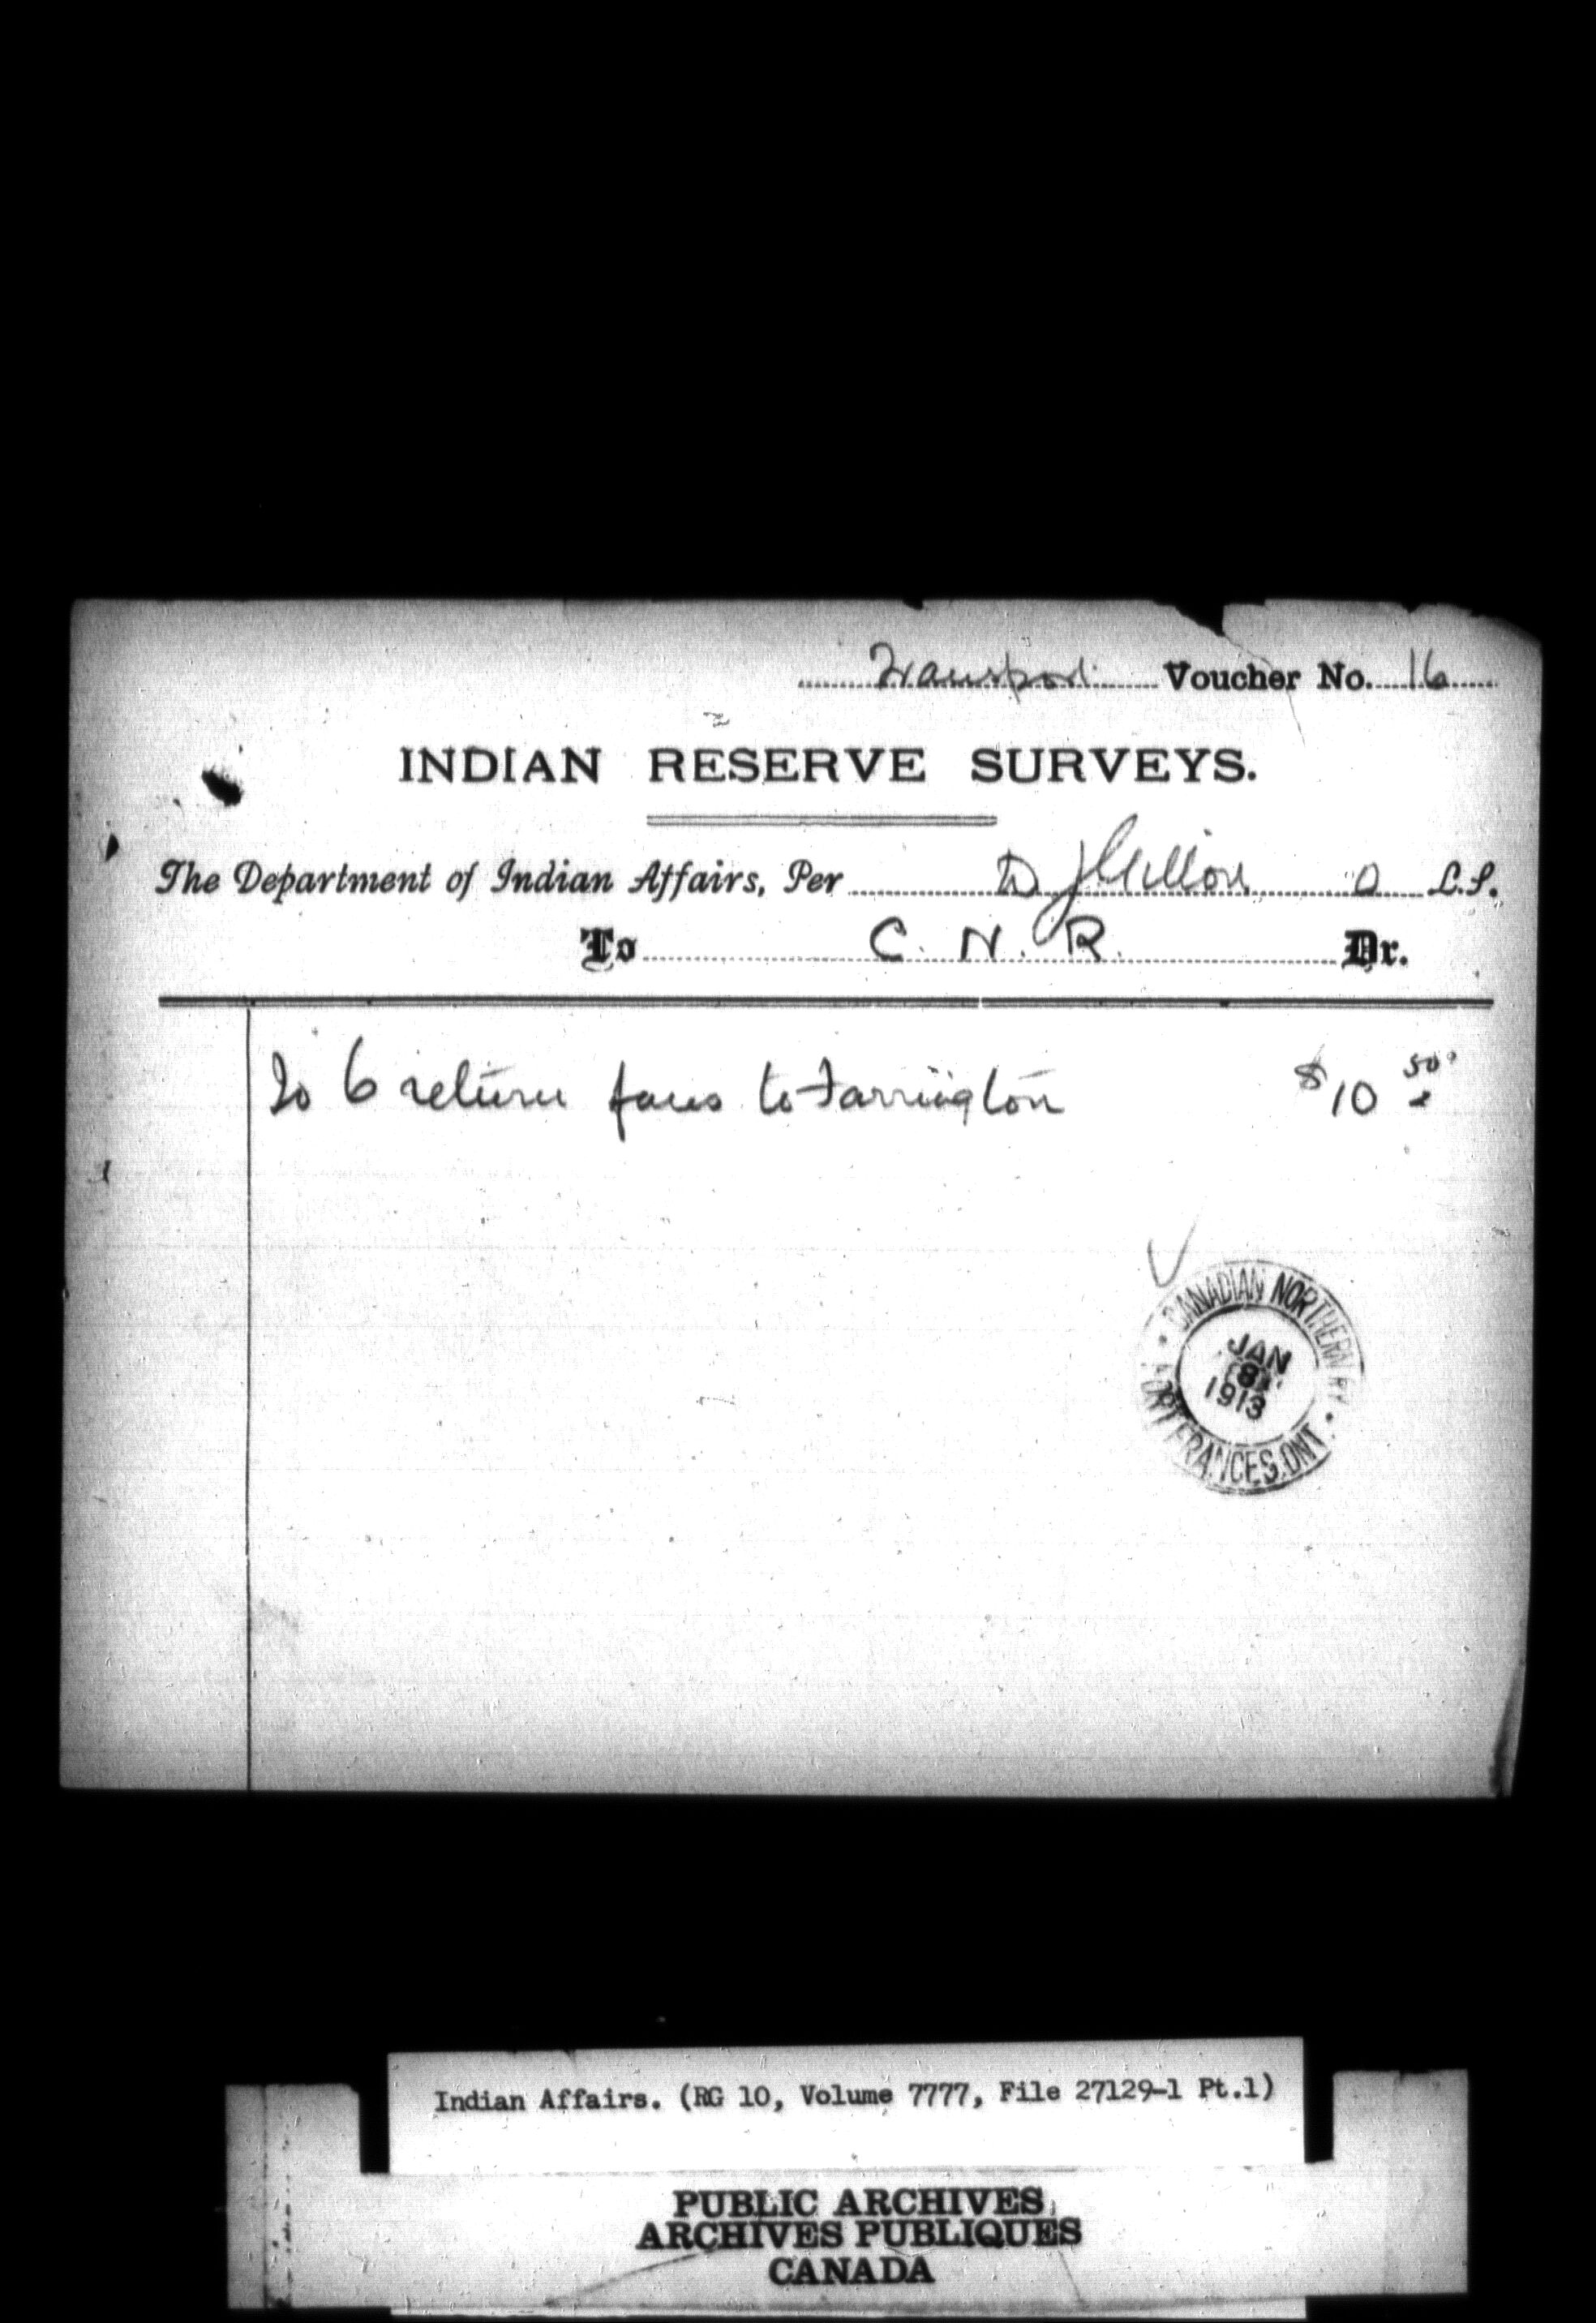 Transport Voucher No. 16
INDIAN RESERVE SURVEYS.
The Department of Indian Affairs, Per D J Gillon O L.S.
To C. N. R. Dr.
To 6 return fares to Farrington $10 50
CANADIAN NORTHERN RY
JAN
8
1913
FORT FRANCES. ONT.
Indian Affairs. (RG 10, Volume 7777, File 27129-1 Pt.1)
PUBLIC ARCHIVES
ARCHIVES PUBLIQUES
CANADA